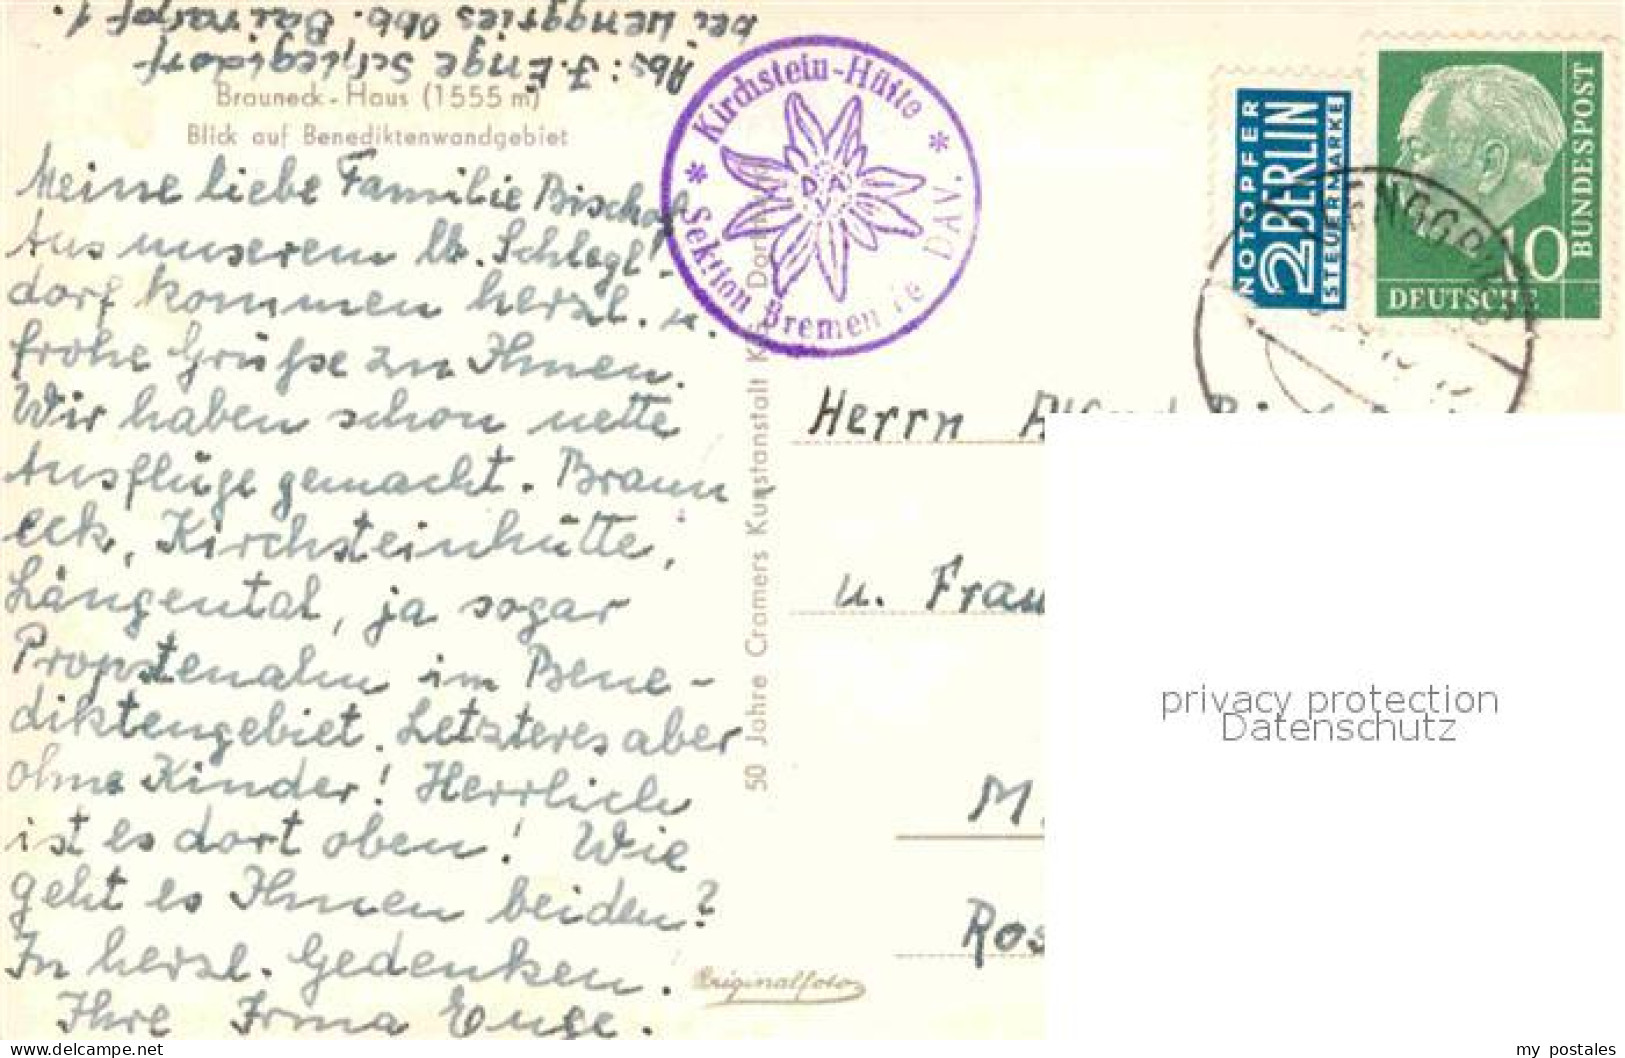 Abs: J. Enge Schlegldorf
bei Lenggries Obb. Bairrapf 1.
Brauneck-Haus (1555 m)
Blick auf Benediktenwandgebiet
Meine liebe Familie Bischof
Aus unserem lb. Schlegl-
dorf kommen herzl. u.
frohe Grüße zu Ihnen.
Wir haben schon nette
Ausflüge gemacht. Braun
eck, Kirchsteinhütte,
Längental, ja sogar
Propstenalm im Bene-
diktengebiet. Letzteres aber
ohne Kinder! Herrlich
ist es dort oben! Wie
geht es Ihnen beiden?
In herzl. Gedenken.
Ihre Irma Enge.
* Kirchstein-Hütte *
Sektion Bremen DAV.
DAV
50 Jahre Cramers Kunstanstalt
Originalfoto
NOTOPFER
2 BERLIN
STEUERMARKE
DEUTSCHE
BUNDESPOST
10
LENGGRIES
Herrn
u. Frau
M.
Ros
privacy protection
Datenschutz
my postales
www.delcampe.net